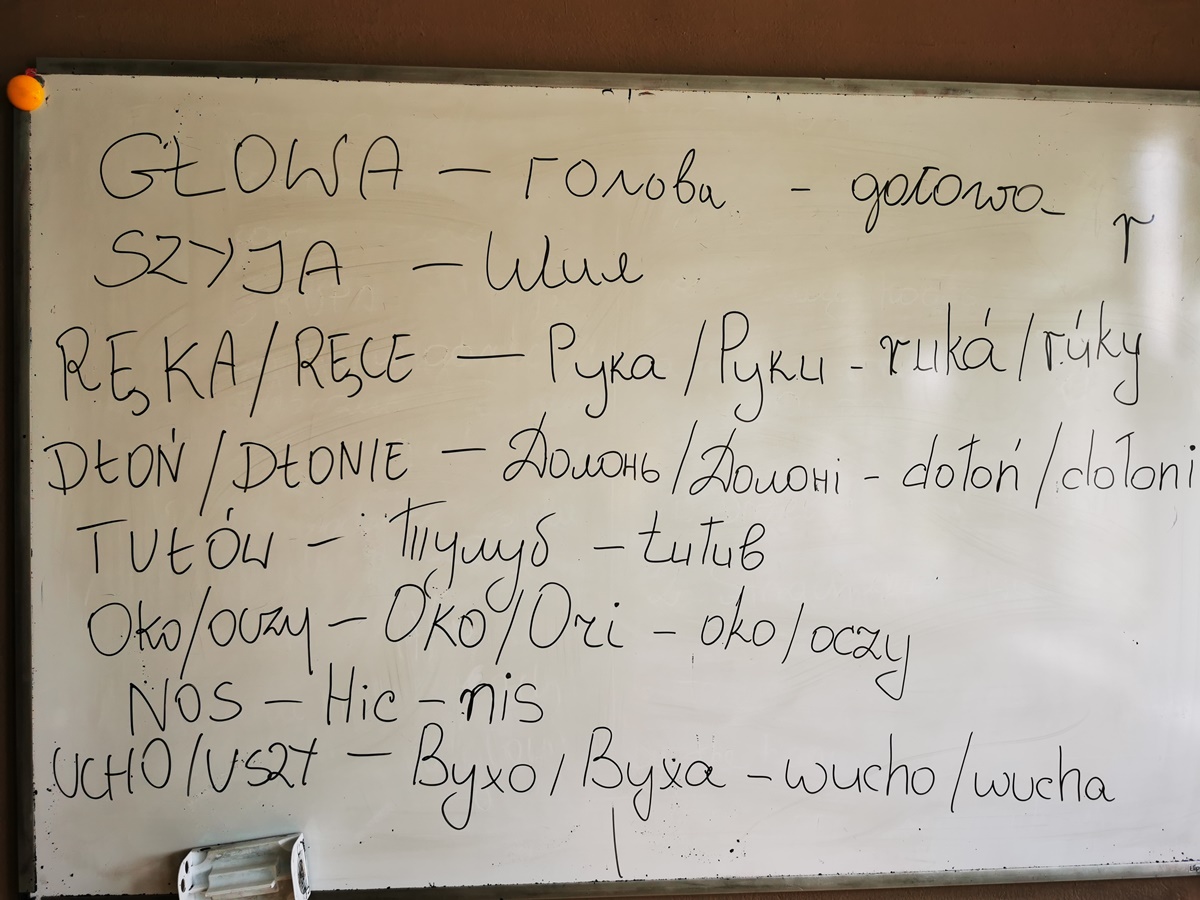 GŁOWA - голова - gołowa
r
SZYJA - Шия
RĘKA/RĘCE - Рука/Руки - ruká/rúky
DŁOŃ/DŁONIE - Долонь/Долоні - dołoń/dołoni
TUŁÓW - Тулуб - tułub
Oko/oczy - Око/Очі - oko/oczy
NOS - Ніс - nis
UCHO/USZY - Вухо/Вуха - wucho/wucha